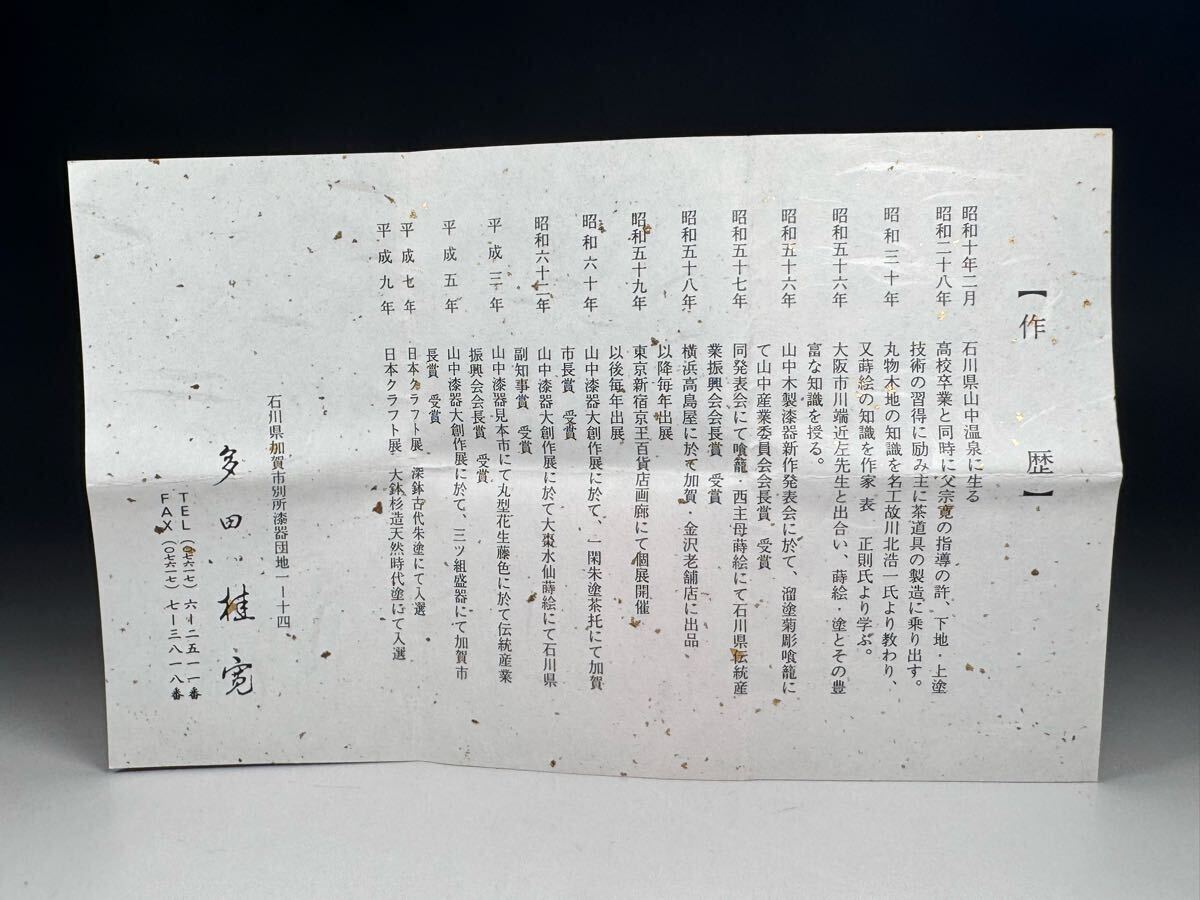 【作 歴】
昭和十年二月 石川県山中温泉に生る
昭和二十八年 高校卒業と同時に父宗寛の指導の許、下地・上塗
技術の習得に励み主に茶道具の製造に乗り出す。
昭和三十年 丸物木地の知識を名工故川北浩一氏より教わり、
又蒔絵の知識を作家 表 正則氏より学ぶ。
昭和五十六年 大阪市川端近左先生と出合い、蒔絵・塗とその豊
富な知識を授る。
昭和五十六年 山中木製漆器新作発表会に於て、溜塗菊彫喰籠に
て山中産業委員会会長賞 受賞
昭和五十七年 同発表会にて喰籠・西王母蒔絵にて石川県伝統産
業振興会会長賞 受賞
昭和五十八年 横浜高島屋に於て加賀・金沢老舗店に出品
以降毎年出展
昭和五十九年 東京新宿京王百貨店画廊にて個展開催
以後毎年出展
昭和六十年 山中漆器大創作展に於て、一閑朱塗茶托にて加賀
市長賞 受賞
昭和六十二年 山中漆器大創作展に於て大棗水仙蒔絵にて石川県
副知事賞 受賞
平成三年 山中漆器見本市にて丸型花生藤色に於て伝統産業
振興会会長賞 受賞
平成五年 山中漆器大創作展に於て、三ツ組盛器にて加賀市
長賞 受賞
平成七年 日本クラフト展 深鉢古代朱塗にて入選
平成九年 日本クラフト展 大鉢杉造天然時代塗にて入選
石川県加賀市別所漆器団地一ー十四
多田桂寛
TEL(〇七六一七)六ー二五一一番
FAX(〇七六一七)七ー三八一八番